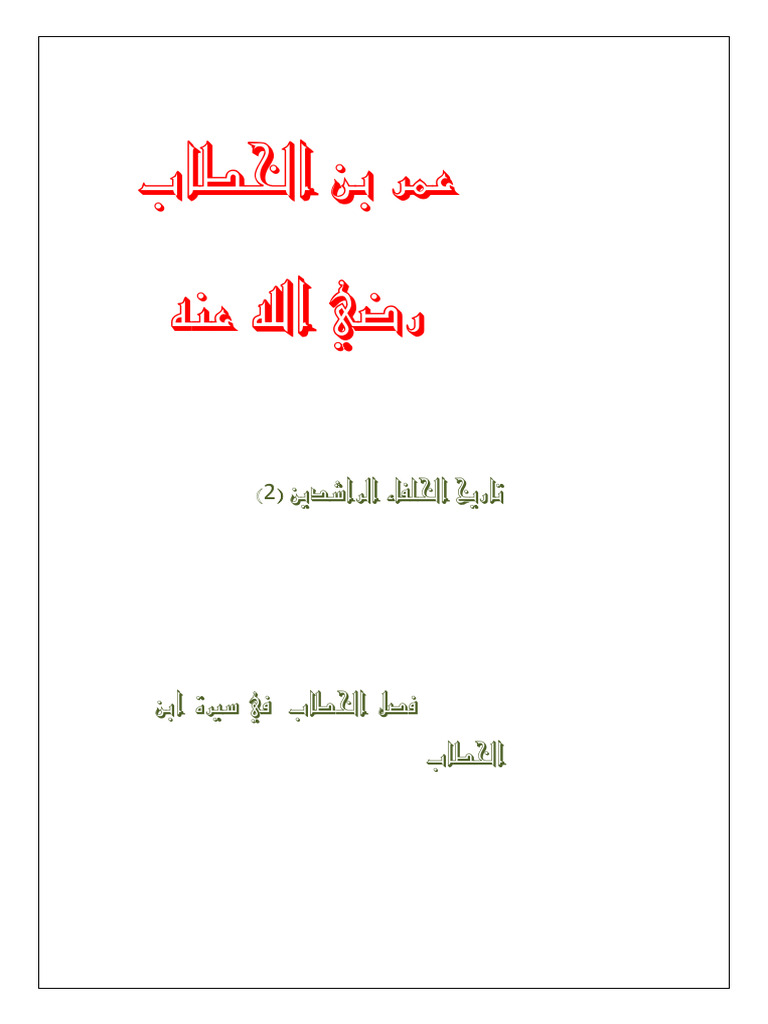 عمر بن الخطاب
رضي الله عنه
تاريخ الخلفاء الراشدين (2)
فصل الخطاب في سيرة ابن
الخطاب